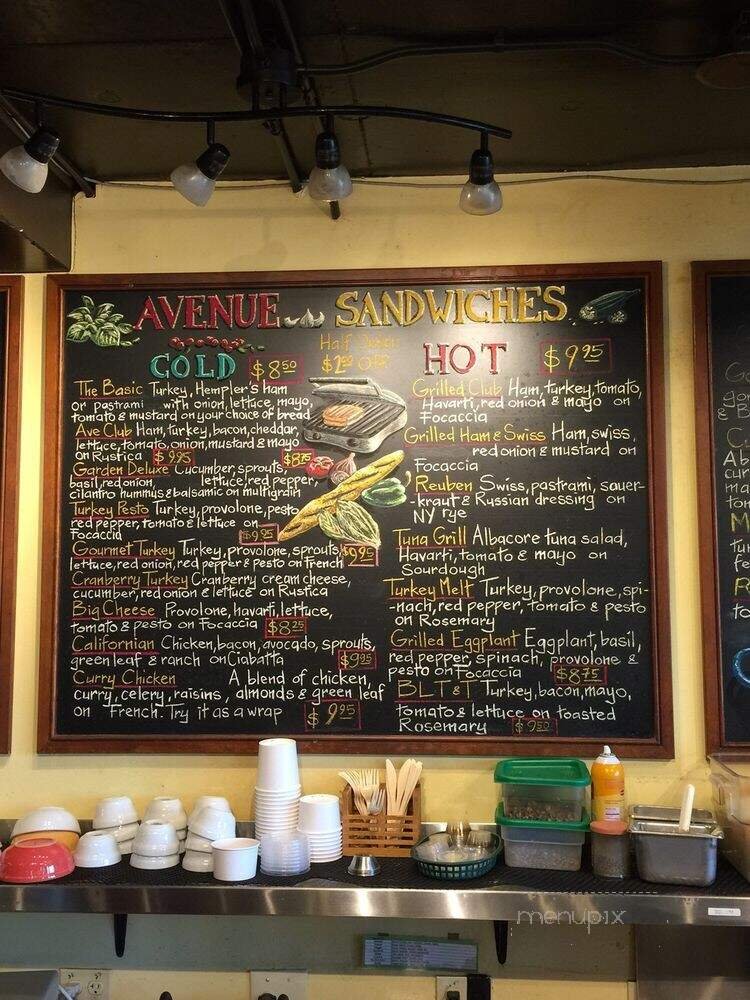 AVENUE SANDWICHES
COLD $8.50
Half
$2.00 Off
The Basic Turkey, Hempler's ham
or pastrami with onion, lettuce, mayo,
tomato & mustard on your choice of bread
Ave Club Ham, turkey, bacon, cheddar,
lettuce, tomato, onion, mustard & mayo
on Rustica $9.95
$8.75
Garden Deluxe Cucumber, sprouts,
basil, red onion lettuce, red pepper,
cilantro hummus & balsamic on multigrain
Turkey Pesto Turkey, provolone, pesto
red pepper, tomato & lettuce on
Focaccia $9.95
Gourmet Turkey Turkey, provolone, sprouts, $9.95
lettuce, red onion, red pepper & pesto on French
Cranberry Turkey Cranberry cream cheese,
cucumber, red onion & lettuce on Rustica
Big Cheese Provolone, havarti, lettuce,
tomato & pesto on Focaccia $8.25
Californian Chicken, bacon, avocado, sprouts,
green leaf & ranch on Ciabatta $9.95
Curry Chicken A blend of chicken,
curry, celery, raisins, almonds & green leaf
on French. Try it as a wrap $9.95
HOT $9.95
Grilled Club Ham, turkey, tomato,
Havarti, red onion & mayo on
Focaccia
Grilled Ham & Swiss Ham, swiss,
red onion & mustard on
Focaccia
Reuben Swiss, pastrami, sauer-
-kraut & Russian dressing on
NY rye
Tuna Grill Albacore tuna salad,
Havarti, tomato & mayo on
Sourdough
Turkey Melt Turkey, provolone, spi-
-nach, red pepper, tomato & pesto
on Rosemary
Grilled Eggplant Eggplant, basil,
red pepper, spinach, provolone &
pesto on Focaccia $8.75
BLT&T Turkey, bacon, mayo,
tomato & lettuce on toasted
Rosemary $9.50
menupix